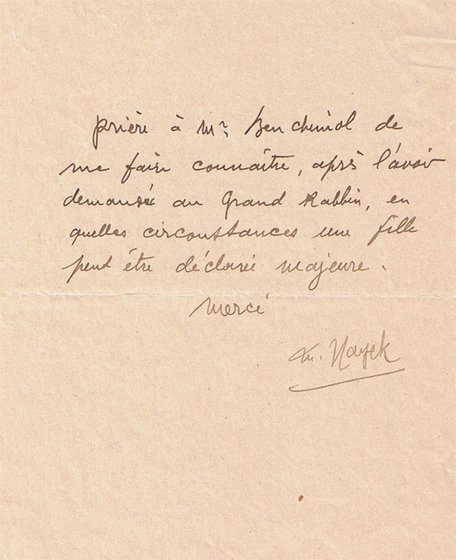 prière à Mr Benchimol de
me faire connaître, après l'avoir
demandé au Grand Rabbin, en
quelles circonstances une fille
peut être déclarée majeure.
Merci
M. Hayek